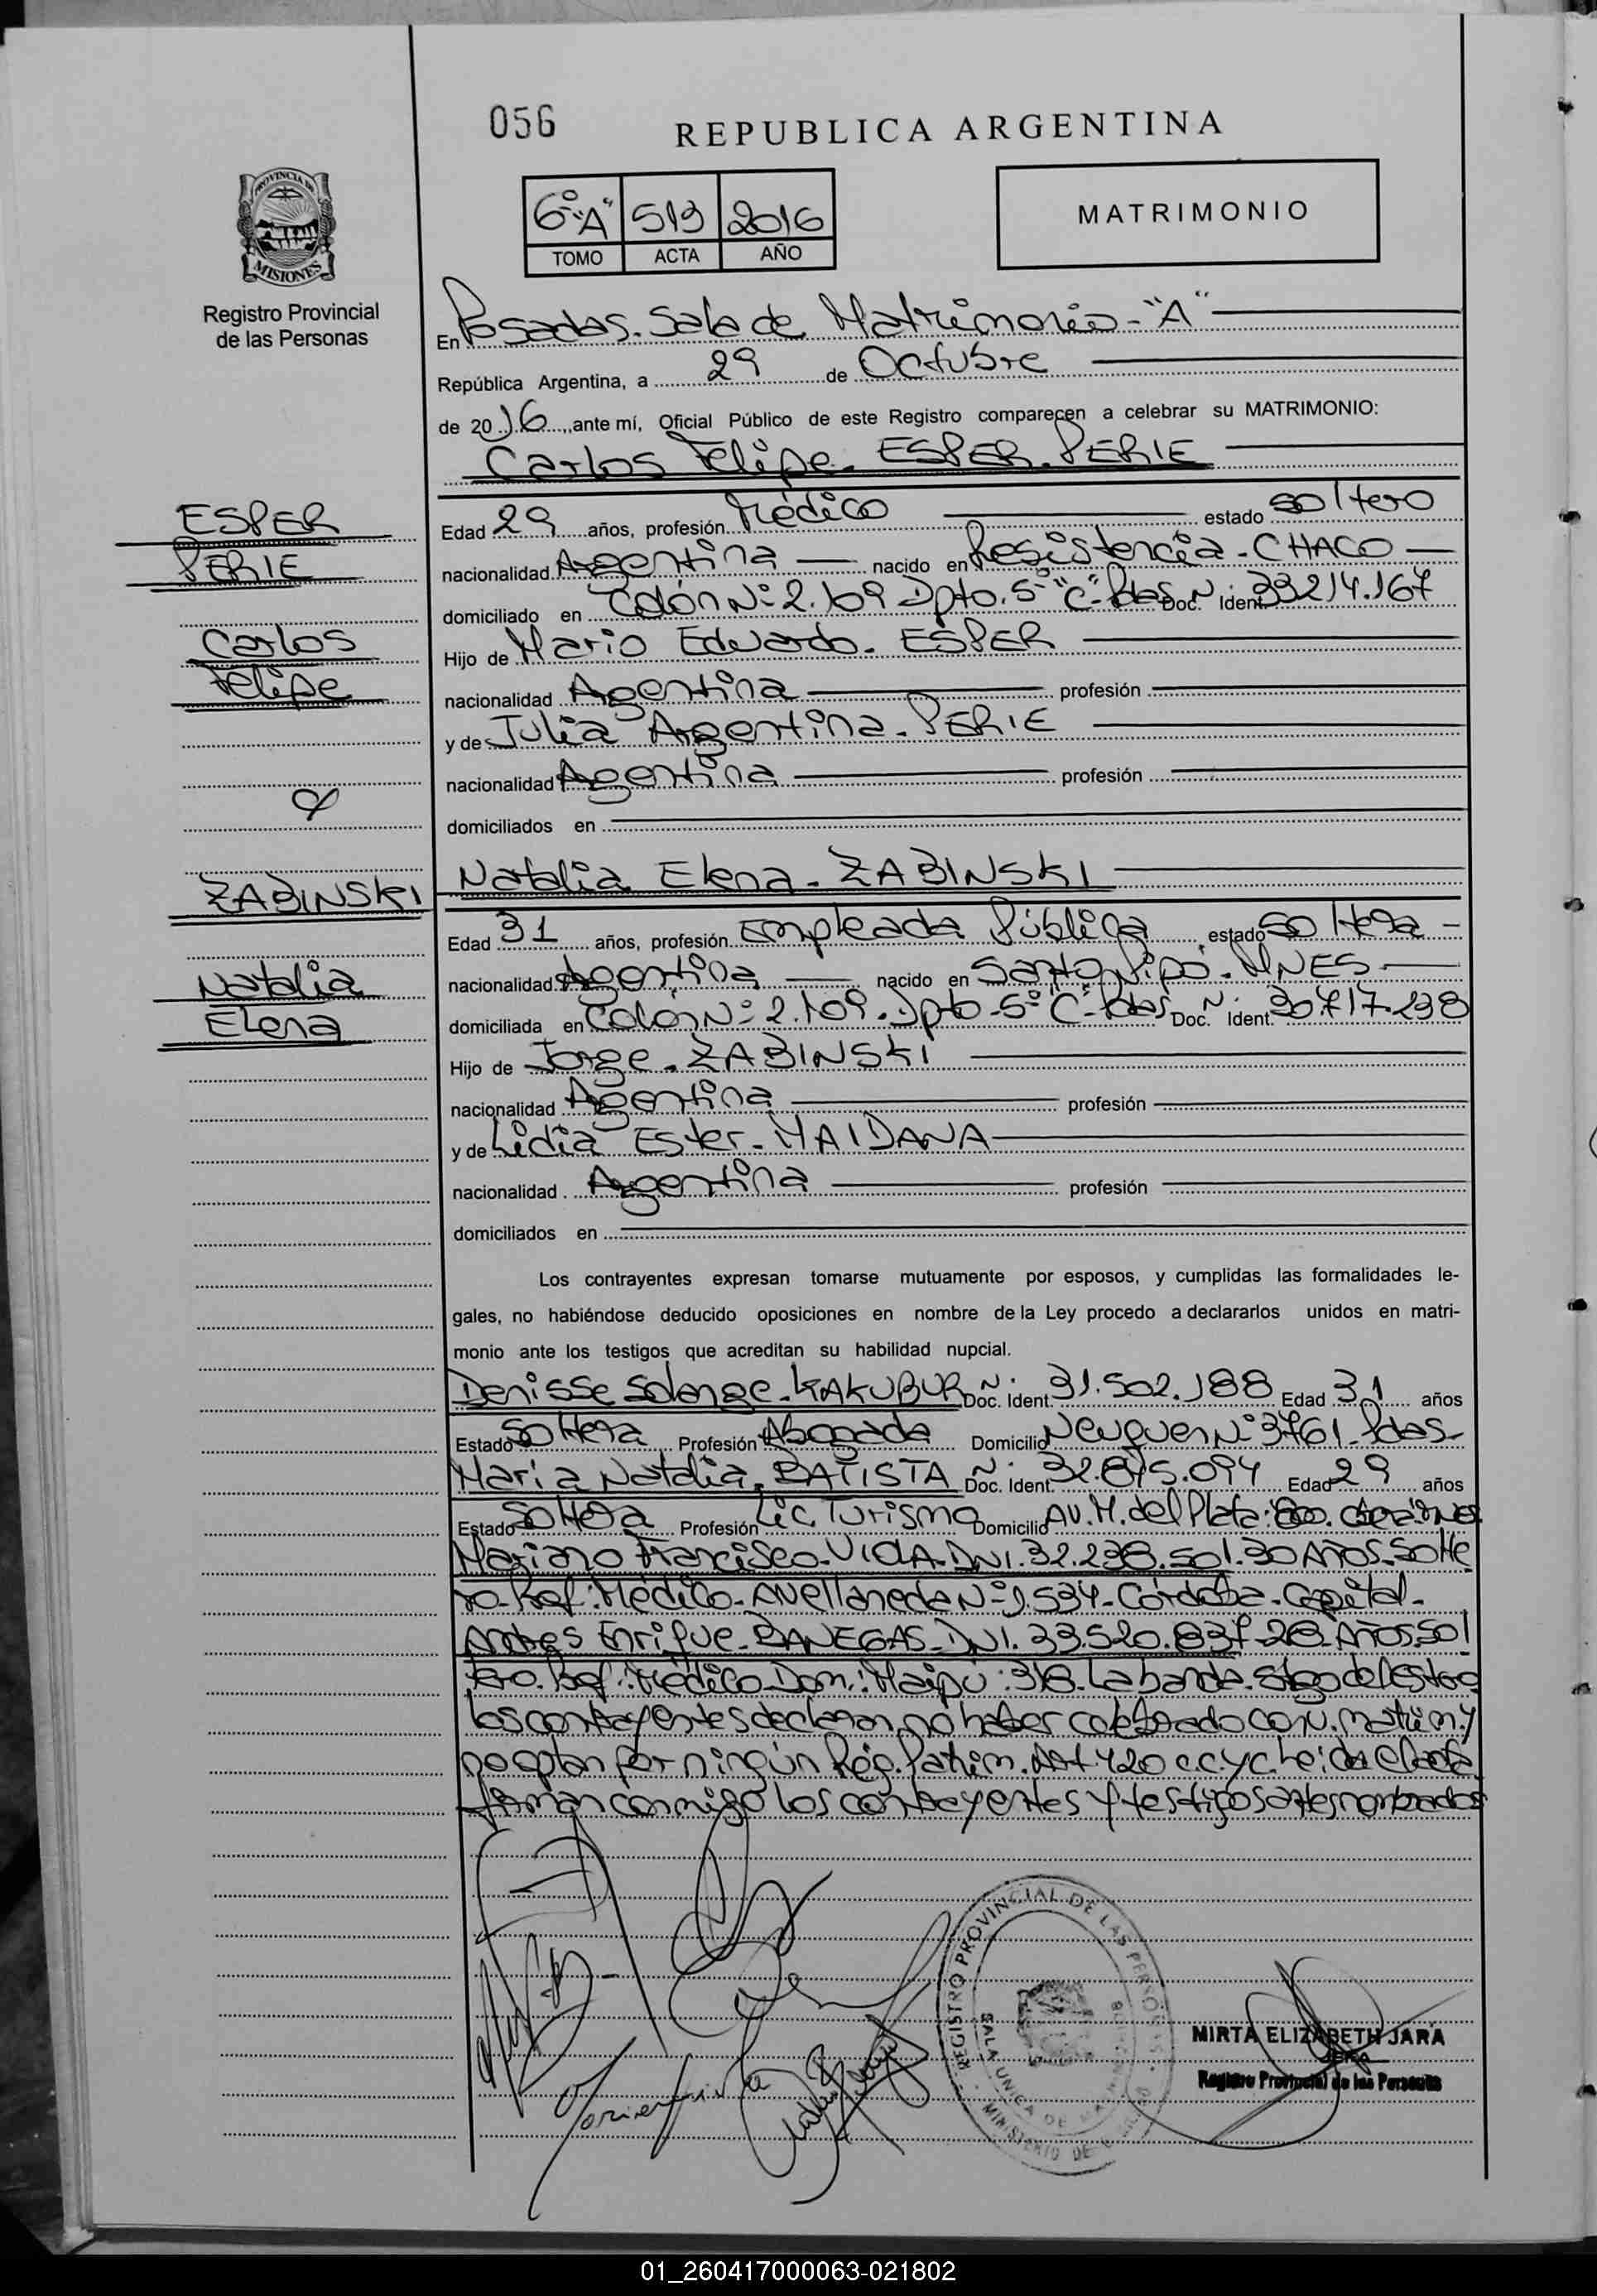 056
REPUBLICA ARGENTINA
PROVINCIA DE
MISIONES
Registro Provincial
de las Personas
6º "A" 513 2016
TOMO ACTA AÑO
MATRIMONIO
En Posadas. Sala de Matrimonio - "A"
República Argentina, a 29 de Octubre
de 2016, ante mí, Oficial Público de este Registro comparecen a celebrar su MATRIMONIO:
Carlos Felipe. ESPER. PERIE
ESPER
PERIE
Carlos
Felipe
Edad 29 años, profesión Médico estado soltero
nacionalidad Argentina nacido en Resistencia - CHACO
domiciliado en Colón Nº 2.109 Dpto. 5º "C" Pdas Doc. Nº Ident. 33214.167
Hijo de Mario Eduardo. ESPER
nacionalidad Argentina profesión
y de Julia Argentina. PERIE
nacionalidad Argentina profesión
domiciliados en
Natalia Elena. ZABINSKI
ZABINSKI
Natalia
Elena
Edad 31 años, profesión Empleada Pública estado soltera
nacionalidad Argentina nacido en Santo Pipó. MNES
domiciliada en Colón Nº 2.109. Dpto - 5º "C" Pdas Doc. Nº Ident. 30.717.238
Hijo de Jorge. ZABINSKI
nacionalidad Argentina profesión
y de Lidia Ester. MAIDANA
nacionalidad Argentina profesión
domiciliados en
Los contrayentes expresan tomarse mutuamente por esposos, y cumplidas las formalidades le-
gales, no habiéndose deducido oposiciones en nombre de la Ley procedo a declararlos unidos en matri-
monio ante los testigos que acreditan su habilidad nupcial.
Denisse Solange. KAKUBUR Doc. Nº Ident. 31.502.188 Edad 31 años
Estado Soltera Profesión Abogada Domicilio Neuquen Nº 3761 Pdas
María Natalia. BATISTA Doc. Nº Ident. 32.875.094 Edad 29 años
Estado Soltera Profesión Lic. Turismo Domicilio Av. M. del Plata
Mariano Francisco. VIOLA. DNI. 32.238.501. 30 Años. Solte
ro. Prof: Médico. Avellaneda Nº 1.534. Córdoba. Capital.
Andres Enrique. BANEGAS. DNI. 33.520.837. 28. Años. Sol
tero. Prof: Médico. Dom: Maipú: 318. La banda. Stgo del Estero
los contrayentes declaran no haber celebrado conv. matrim. y
no optan por ningún Rég. Patrim. Art 420 c.c.y c. Leida el acta
firman conmigo los contrayentes y testigos antes nombrados
REGISTRO PROVINCIAL DE LAS PERSONAS
SALA UNICA DE MATRIMONIOS
MINISTERIO DE
MIRTA ELIZABETH JARA
JEFA
Registro Provincial de las Personas
01_260417000063-021802